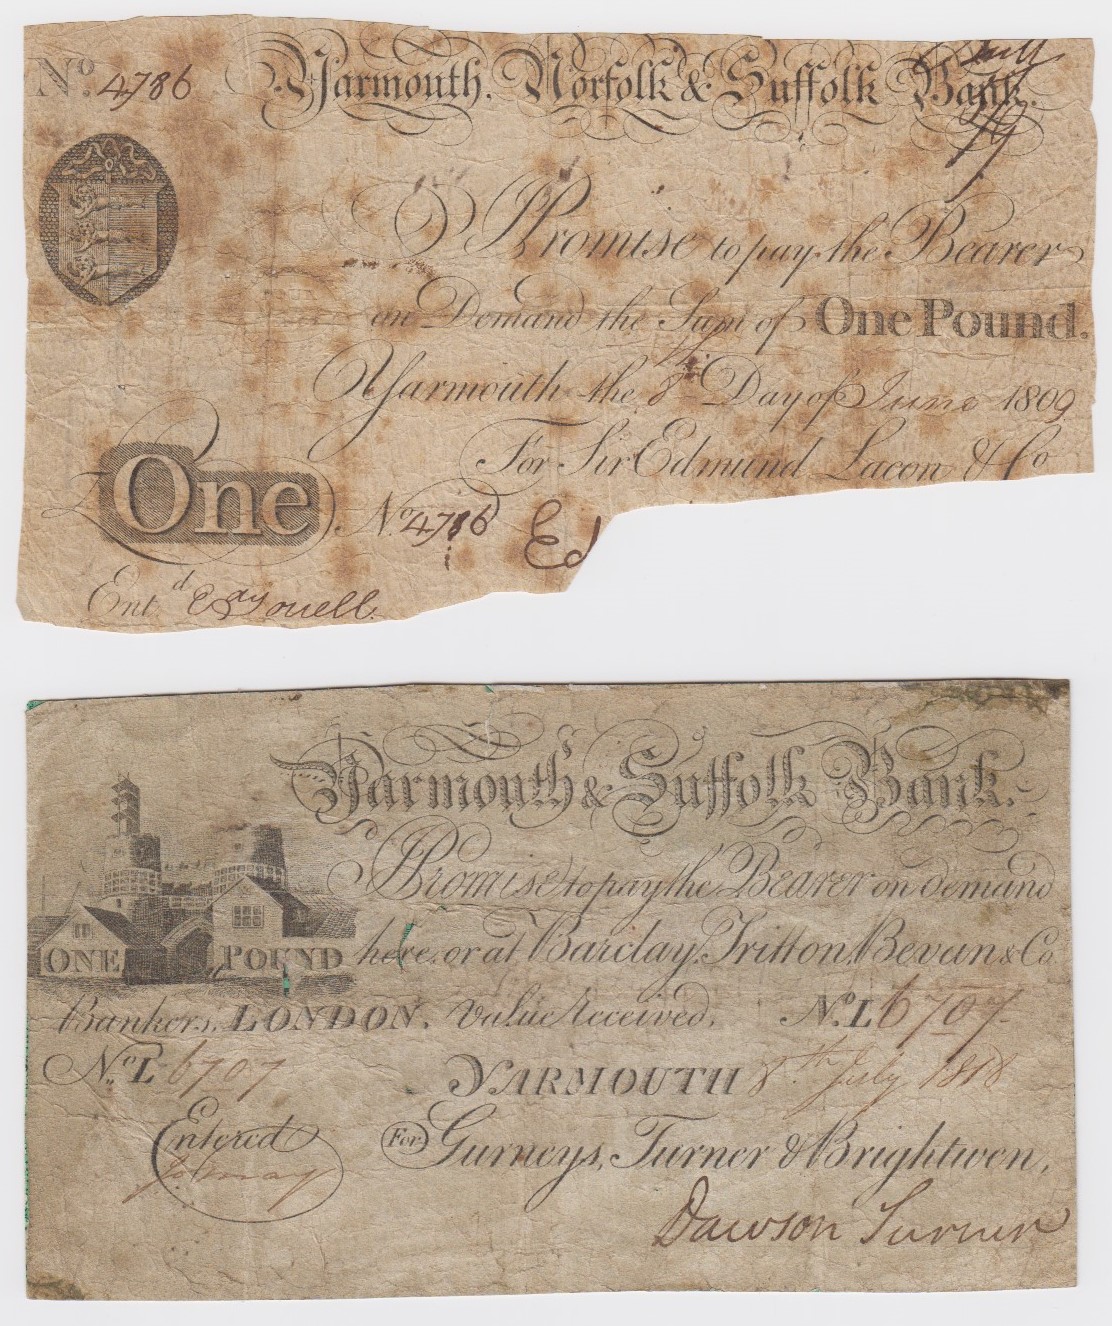 No. 4786 Yarmouth, Norfolk & Suffolk Bank.
I Promise to pay the Bearer
on Demand the Sum of One Pound.
Yarmouth the 8th Day of June 1809
For Sir Edmund Lacon & Co
One No. 4786 Ed
Entd
Yarmouth & Suffolk Bank.
I Promise to pay the Bearer on demand
ONE POUND here, or at Barclay, Tritton, Bevan & Co.
Bankers, LONDON, Value Received, No. L 6707
No. L 6707 YARMOUTH 8th July 1818
Entered For Gurneys, Turner & Brightwen,
Dawson Turner